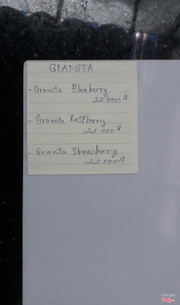 GRANITA
- Granita Blueberry
22.000đ
- Granita Raspberry
22.000đ
- Granita Strawberry
22.000đ